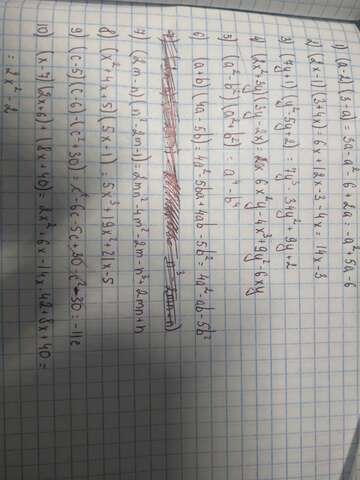 1) (a-2)(3-a) = 3a-a²-6+2a = -a²+5a-6
2) (2x-1)(3-4x) 6x+12x-3-4x = 14x-3
3) (7y+1)(y²-5y+2) = 7y³-34y²+9y+2
4) (2x²+3y)(3y-2x) = 6x²y-4x³+9y²-6xy
5) (a²-b²)(a²+b²) = a⁴-b⁴
6) (a+b)(4a-5b) = 4a²-5ba+4ab-5b² = 4a²-ab-5b²
7) (2m-n)(n²-2m-1) = 2mn²-4m²-2m-n³+2mn+n
8) (x²-4x+5)(5x-1) = 5x³-19x²+21x-5
9) (c-5)(c-6)-(c²+30) = c²-6c-5c+30-c²-30 = -11c
10) (x-7)(2x+6)+(8x+40) = 2x²+6x-14x-42+8x+40 =
= 2x²-2